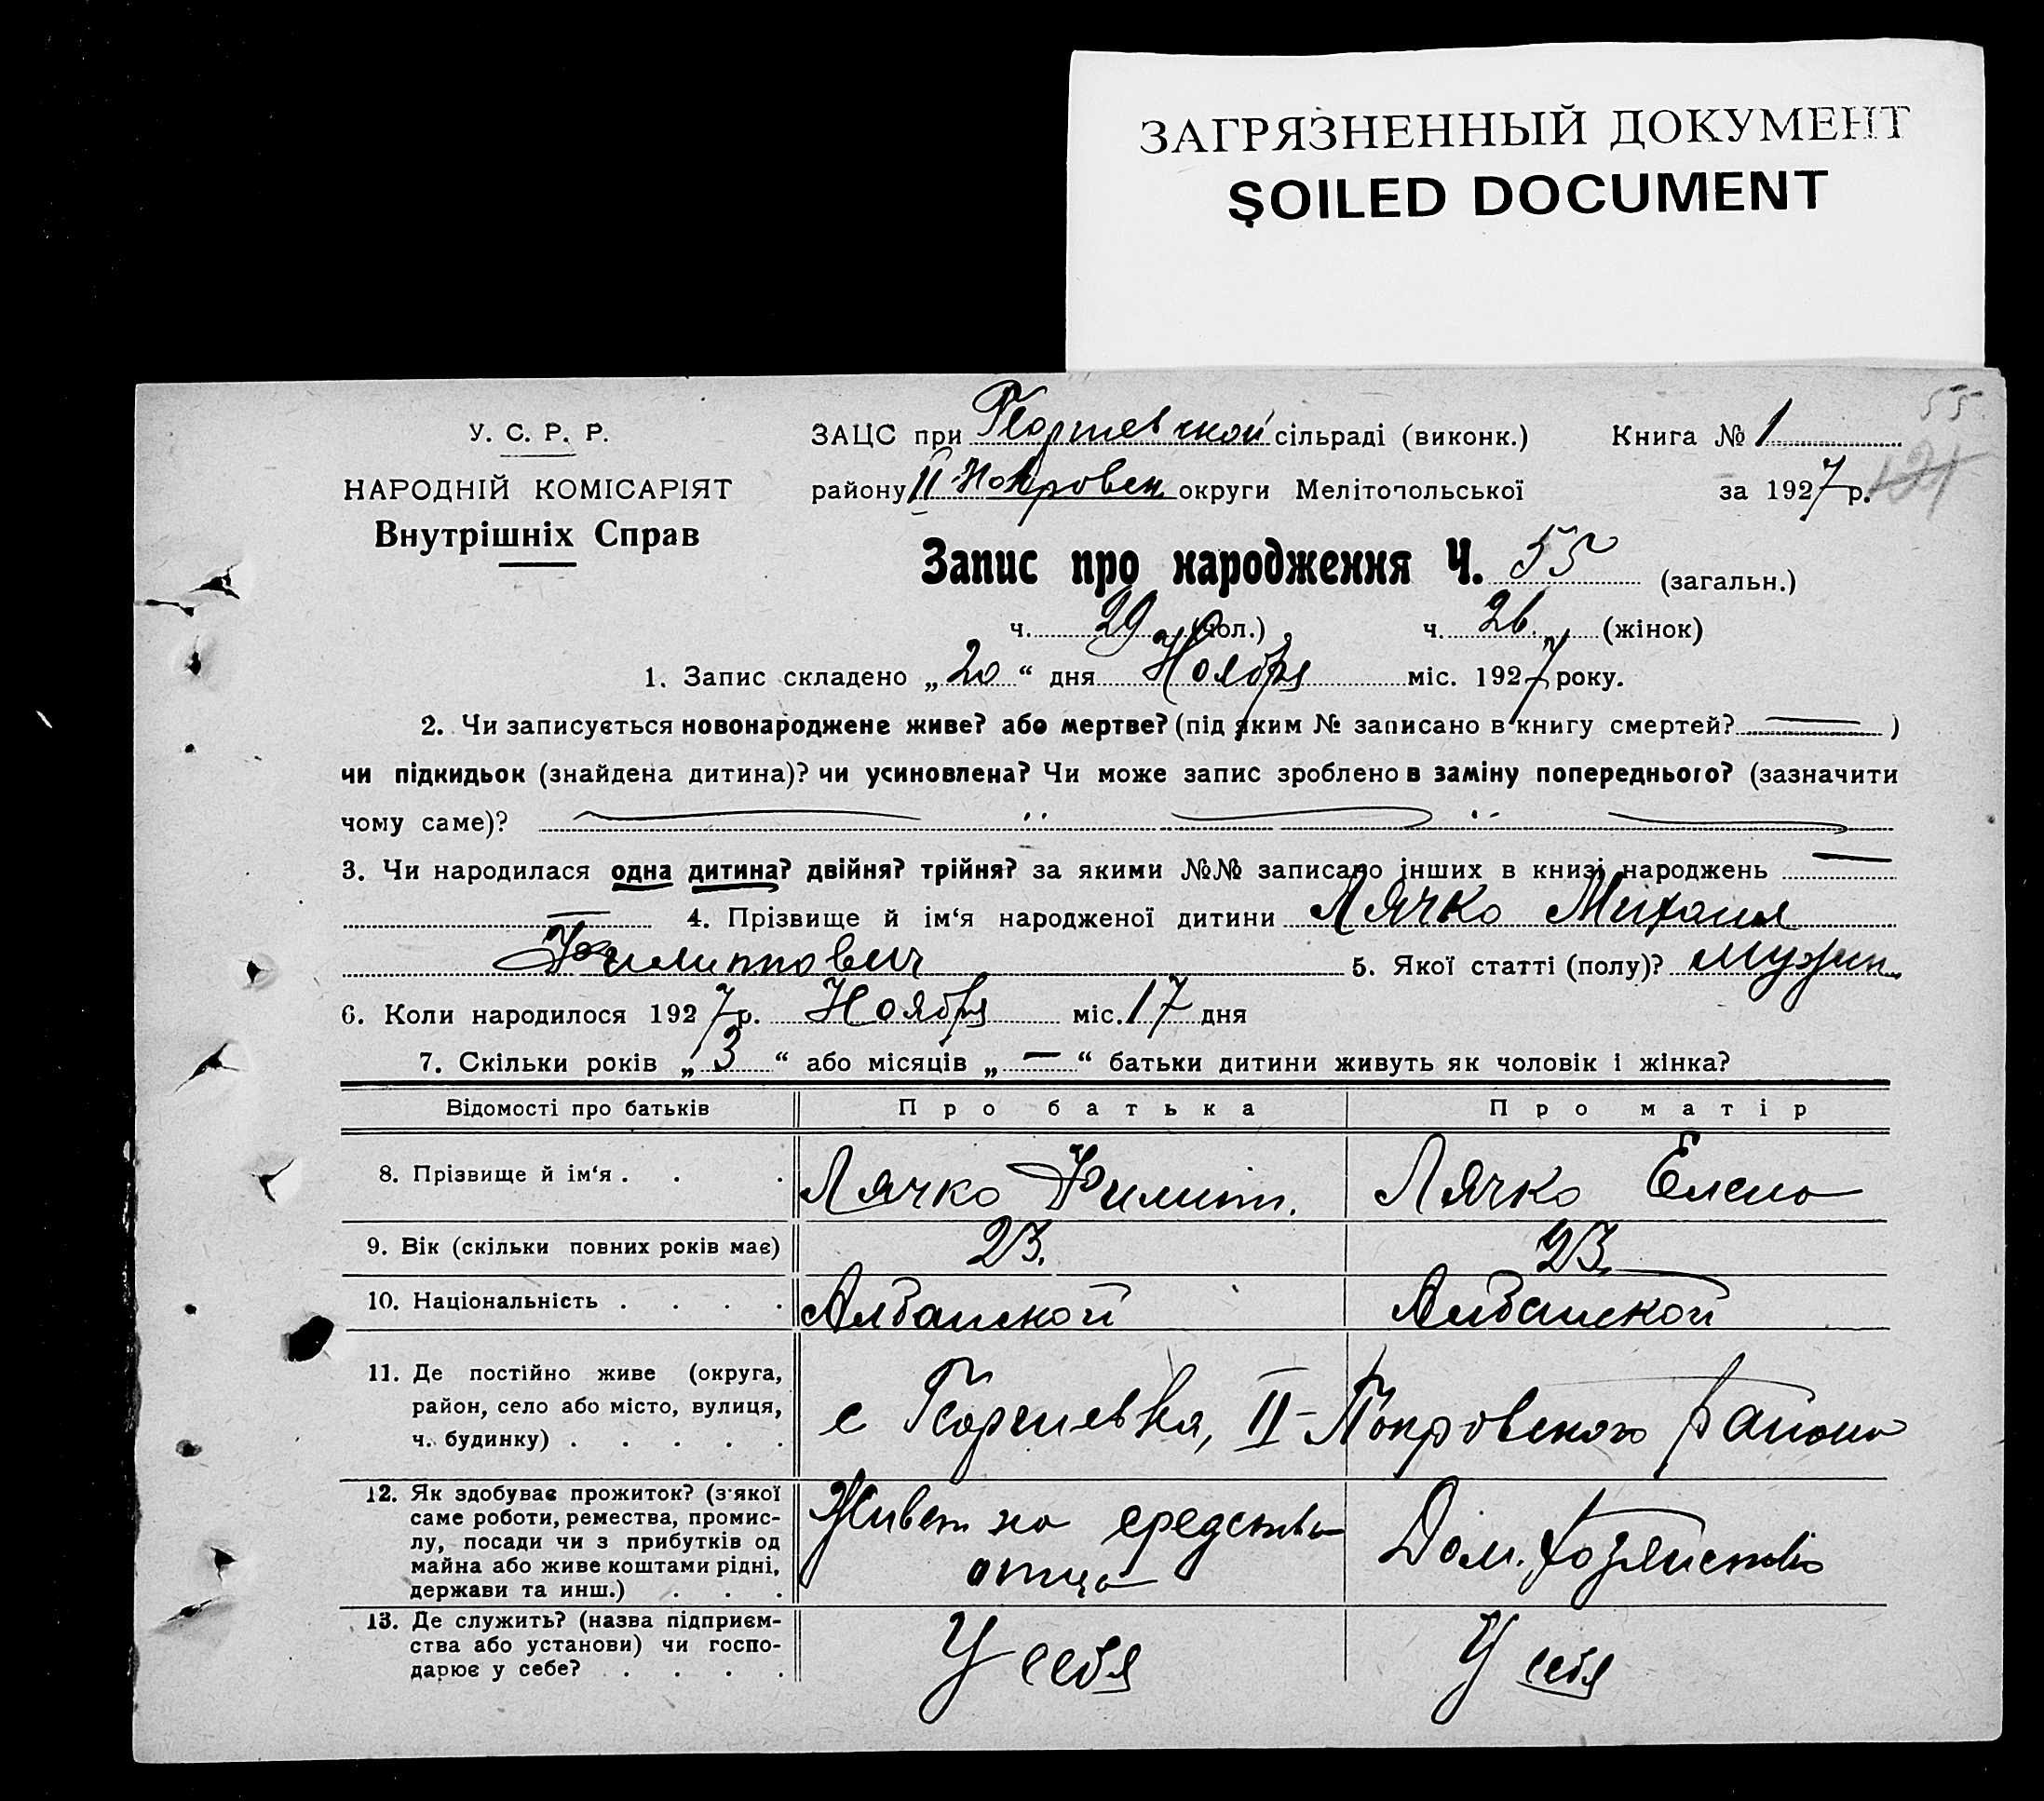 ЗАГРЯЗНЕННЫЙ ДОКУМЕНТ
SOILED DOCUMENT
55
121
У. С. Р. Р.
НАРОДНІЙ КОМІСАРІЯТ
Внутрішніх Справ
ЗАЦС при Георгиевской сільраді (виконк.) Книга № 1
району II Покровск округи Мелітопольської за 1927 р.
Запис про народження Ч. 55 (загальн.)
ч. 29 (чол.) ч. 26. (жінок)
1. Запис складено „20“ дня Ноября міс. 1927 року.
2. Чи записується новонароджене живе? або мертве? (під яким № записано в книгу смертей? — )
чи підкидьок (знайдена дитина)? чи усиновлена? Чи може запис зроблено в заміну попереднього? (зазначити
чому саме)?
3. Чи народилася одна дитина? двійня? трійня? за якими №№ записано інших в книзі народжень —
— 4. Прізвище й ім‘я народженої дитини Лячко Михаил
Филиппович 5. Якої статті (полу)? мужск.
6. Коли народилося 1927 р. Ноября міс. 17 дня
7. Скільки років „3“ або місяців „—“ батьки дитини живуть як чоловік і жінка?
Відомості про батьків Про батька Про матір
8. Прізвище й ім‘я . . . Лячко Филипп. Лячко Елена
9. Вік (скільки повних років має) 23. 23.
10. Національність . . . . Албанской Албанской
11. Де постійно живе (округа,
район, село або місто, вулиця,
ч. будинку) . . . . .
с Георгиевка, II-Покровского района
12. Як здобуває прожиток? (з‘якої
саме роботи, ремества, промис-
лу, посади чи з прибутків од
майна або живе коштами рідні,
держави та инш.) . . .
Живет на средства
отца
Дом. хозяйство
13. Де служить? (назва підприєм-
ства або установи) чи госпо-
дарює у себе? . . . .
У себя У себя